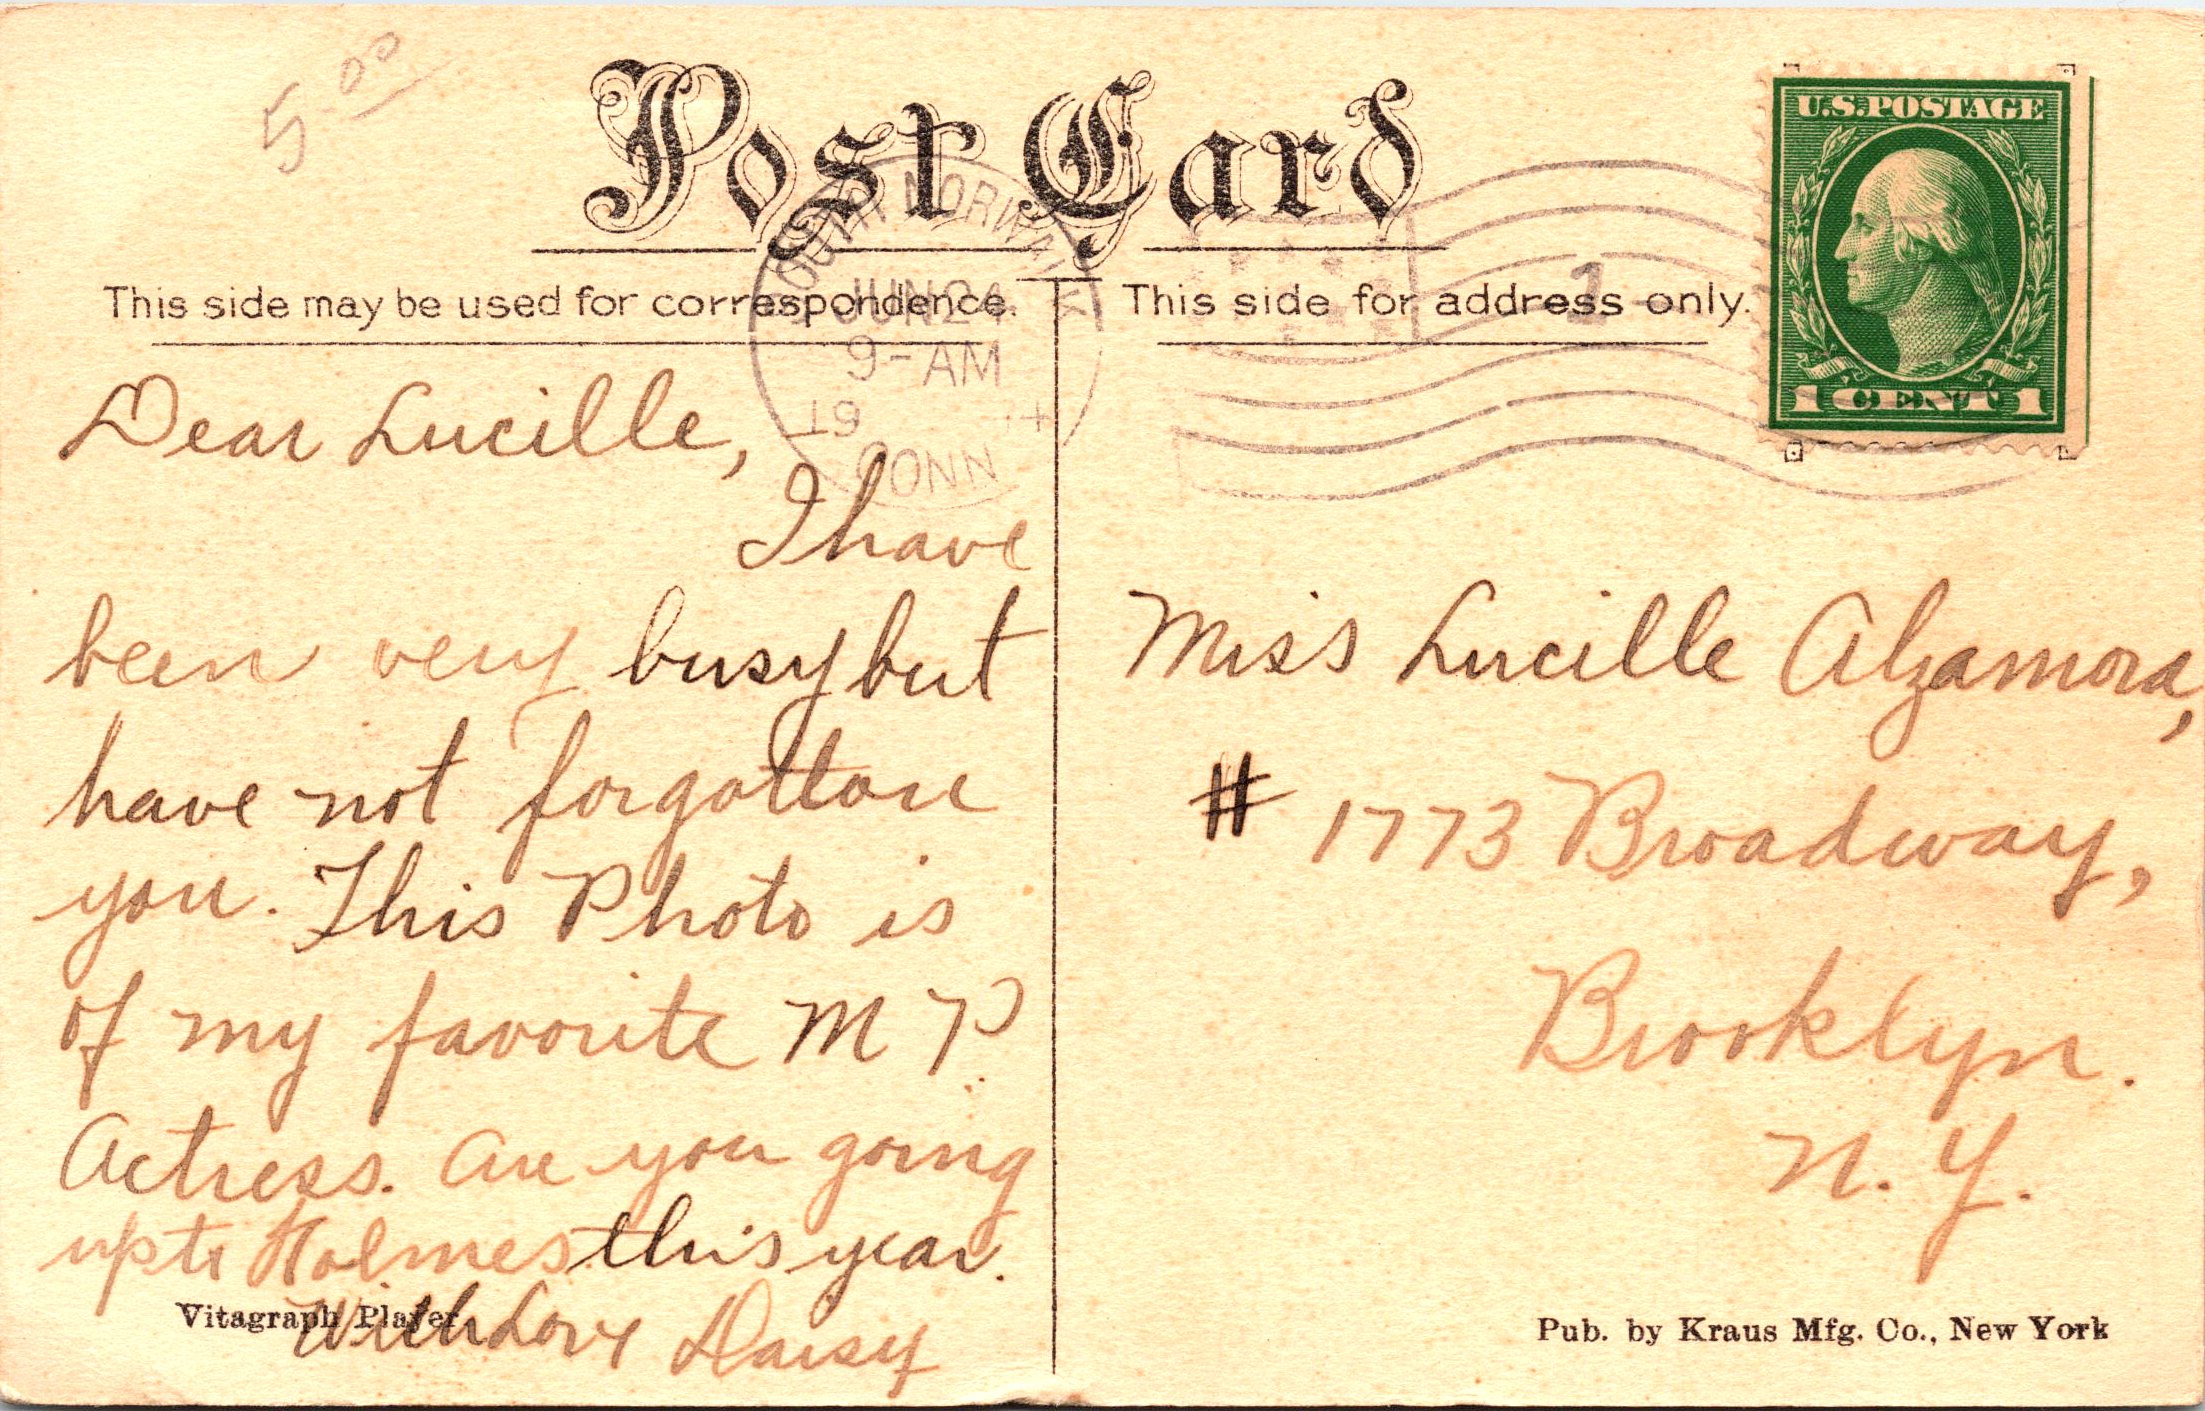 5.00
Post Card
U.S. POSTAGE
1 CENT 1
SOUTH NORWALK
JUN 24
9-AM
19 4
CONN
1
This side may be used for correspondence.
This side for address only.
Dear Lucille,
I have
been very busy but
have not forgotten
you. This Photo is
of my favorite M P.
Actress. Are you going
up to Holmes this year.
With Love Daisy
Vitagraph Player
Miss Lucille Alzamora,
# 1773 Broadway,
Brooklyn.
N. Y.
Pub. by Kraus Mfg. Co., New York